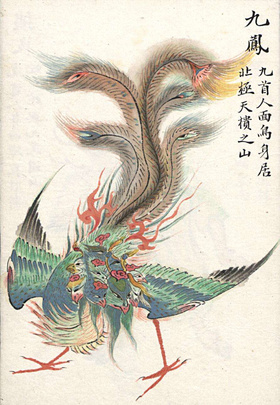 九鳳
九首人面鳥身居
北極天櫃之山